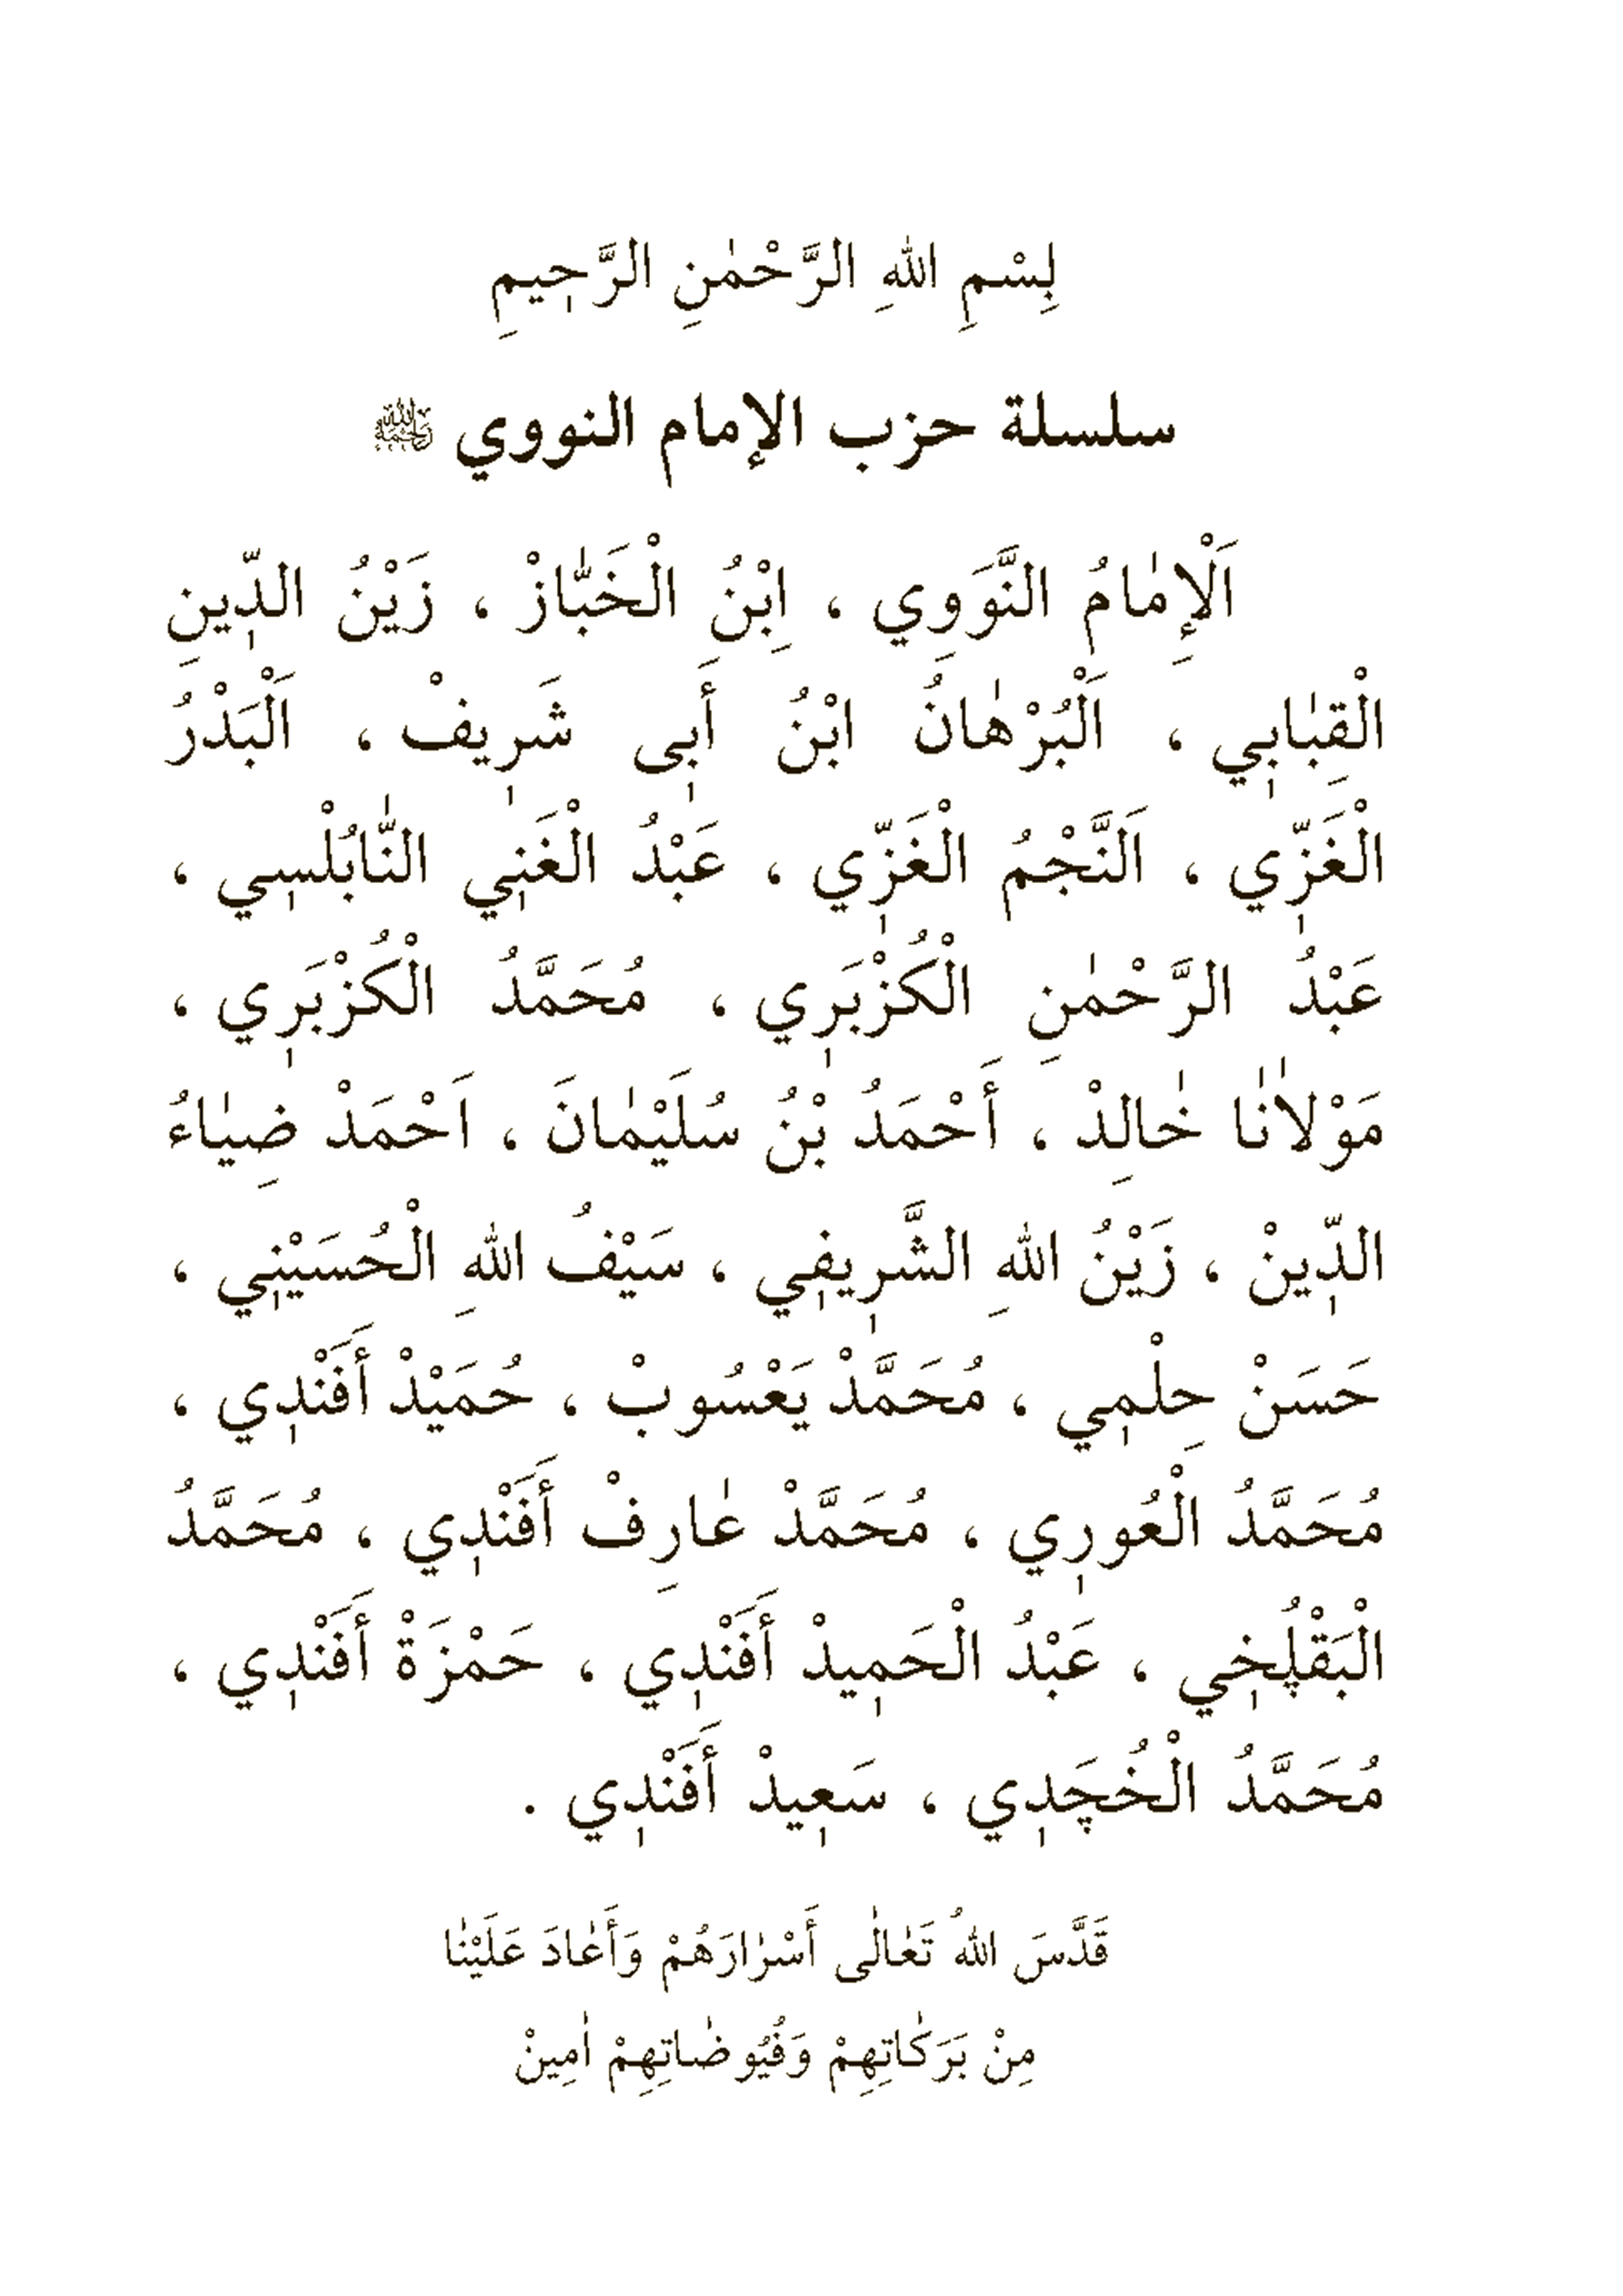 بِسْمِ اللهِ الرَّحْمٰنِ الرَّحٖيمِ
سلسلة حزب الإمام النووي رَحِمَهُ الله
اَلْإِمٰامُ النَّوَوِي ، اِبْنُ الْخَبّٰازْ ، زَيْنُ الدّٖينِ
الْقِبٰابٖي ، اَلْبُرْهٰانُ ابْنُ أَبٖى شَرٖيفْ ، اَلْبَدْرُ
الْغَزّٖي ، اَلنَّجْمُ الْغَزّٖي ، عَبْدُ الْغَنٖي النّٰابُلْسٖي ،
عَبْدُ الرَّحْمٰنِ الْكُزْبَرٖي ، مُحَمَّدُ الْكُزْبَرٖي ،
مَوْلاٰنٰا خٰالِدْ ، أَحْمَدُ بْنُ سُلَيْمٰانَ ، اَحْمَدْ ضِيٰاءُ
الدّٖينْ ، زَيْنُ اللهِ الشَّرٖيفٖي ، سَيْفُ اللهِ الْحُسَيْنٖي ،
حَسَنْ حِلْمٖي ، مُحَمَّدْ يَعْسُوبْ ، حُمَيْدْ أَفَنْدٖي ،
مُحَمَّدُ الْعُورٖي ، مُحَمَّدْ عٰارِفْ أَفَنْدٖي ، مُحَمَّدُ
الْبَقْلُخٖي ، عَبْدُ الْحَمٖيدْ أَفَنْدٖي ، حَمْزَةْ أَفَنْدٖي ،
مُحَمَّدُ الْخُچَدٖي ، سَعٖيدْ أَفَنْدٖي .
قَدَّسَ اللهُ تَعٰالٰى أَسْرٰارَهُمْ وَأَعٰادَ عَلَيْنٰا
مِنْ بَرَكٰاتِهِمْ وَفُيُوضٰاتِهِمْ اٰمِينْ